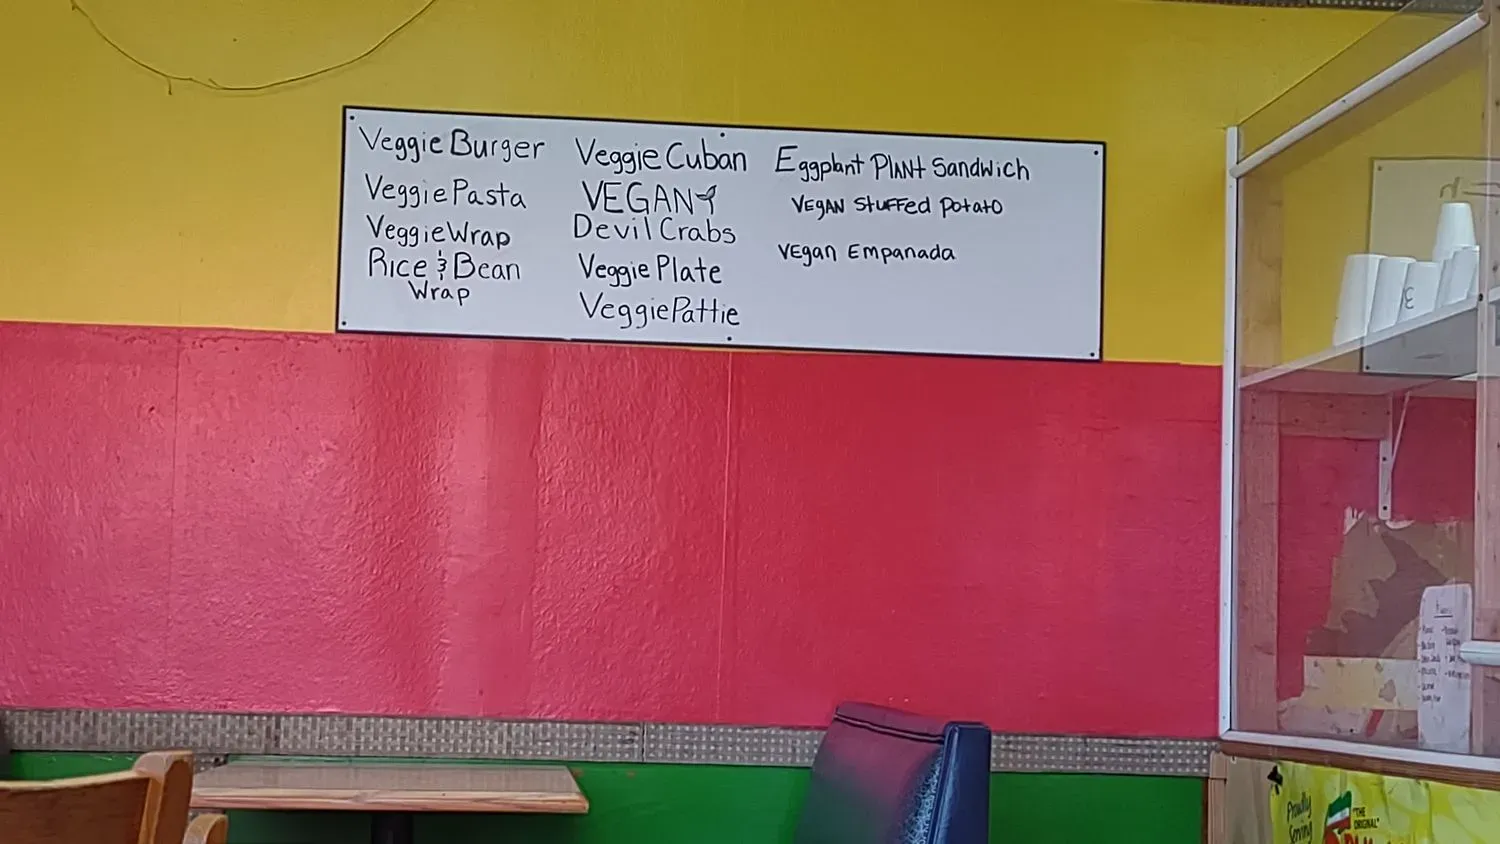 Veggie Burger
Veggie Pasta
Veggie Wrap
Rice & Bean
Wrap
Veggie Cuban
VEGAN
Devil Crabs
Veggie Plate
Veggie Pattie
Eggplant PlANt Sandwich
VEgAN Stuffed potato
VEgan Empanada
Proudly
Serving
"THE
ORIGINAL"